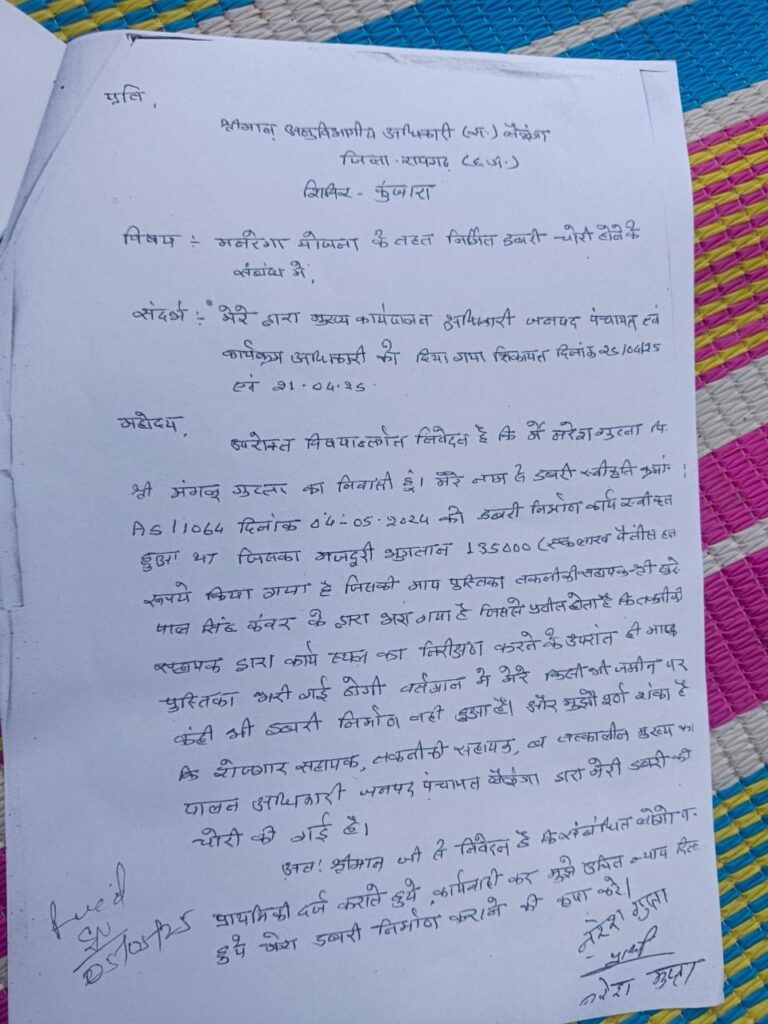 प्रति,
श्रीमान् अनुविभागीय अधिकारी (रा.) लैलूंगा
जिला - रायगढ़ (छ.ग.)
शिविर - कुंजारा
विषय :- मनरेगा योजना के तहत निर्मित डबरी चोरी होने के
संबंध में,
संदर्भ :- मेरे द्वारा मुख्य कार्यपालन अधिकारी जनपद पंचायत एवं
कार्यक्रम अधिकारी को दिया गया शिकायत दिनांक 25/04/25
एवं 21.04.25.
महोदय,
उपरोक्त विषयान्तर्गत निवेदन है कि मैं नरेश गुप्ता पि.
श्री मंगलू गुप्ता का निवासी हूं। मेरे नाम से डबरी स्वीकृति क्रमां
AS/1064 दिनांक 04-05-2024 को डबरी निर्माण कार्य स्वीकृत
हुआ था जिसका मजदूरी भुगतान 135000 (एक लाख पैंतीस हजा
रूपये किया गया है जिसकी माप पुस्तिका तकनीकी सहायक श्री
पाल सिंह कंवर के द्वारा भरा गया है जिससे प्रतीत होता है कि तकनीकी
सहायक द्वारा कार्य स्थल का निरीक्षण करने के उपरांत ही माप
पुस्तिका भरी गई होगी वर्तमान में मेरे किसी भी जमीन पर
कंही भी डबरी निर्माण नहीं हुआ है। और मुझे पूर्ण शंका है
कि रोजगार सहायक, तकनीकी सहायक, व तत्कालीन मुख्य का
पालन अधिकारी जनपद पंचायत लैलूंगा द्वारा मेरी डबरी की
चोरी की गई है।
अतः श्रीमान जी से निवेदन है कि संबंधित लोगो प
प्राथमिकी दर्ज कराते हुये कार्यवाही कर मुझे उचित न्याय दिल
हुये मेरा डबरी निर्माण कराने की कृपा करे।
नरेश गुप्ता
प्रार्थी
नरेश गुप्ता
Rec'd
05/05/25